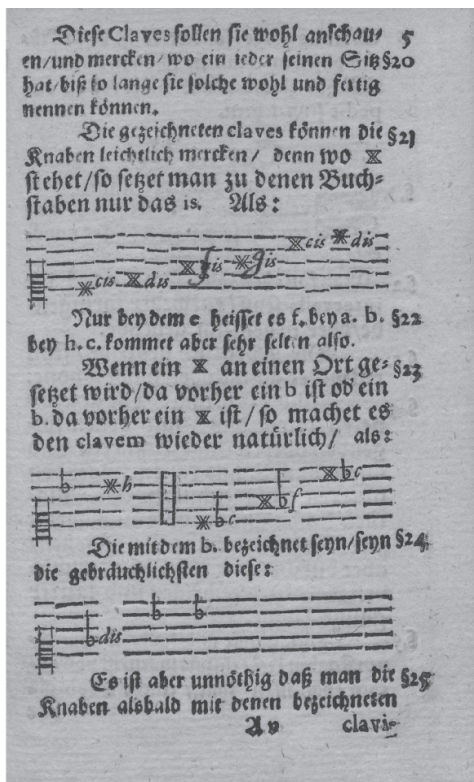 Dieſe Claves ſollen ſie wohl anſchau- 5
en/und mercken/wo ein ieder ſeinen Sitz §20
hat/biß ſo lange ſie ſolche wohl und fertig
nennen können.
Die gezeichneten claves können die §21
Knaben leichtlich mercken/ denn wo ※
ſtehet/ſo ſetzet man zu denen Buch-
ſtaben nur das is. Als:
cis dis fis gis cis dis
Nur bey dem e heiſſet es f. bey a. b. §22
bey h. c. kommet aber ſehr ſelten alſo.
Wenn ein ※ an einen Ort ge- §23
ſetzet wird/da vorher ein b iſt oď ein
b. da vorher ein ※ iſt/ſo machet es
den clavem wieder natürlich/ als:
b h b c b f b c
Die mit dem b. bezeichnet ſeyn/ſeyn §24.
die gebräuchlichſten dieſe:
b dis b b
Es iſt aber unnöthig daß man die §25
Knaben alsbald mit denen bezeichneten
A v clavi-